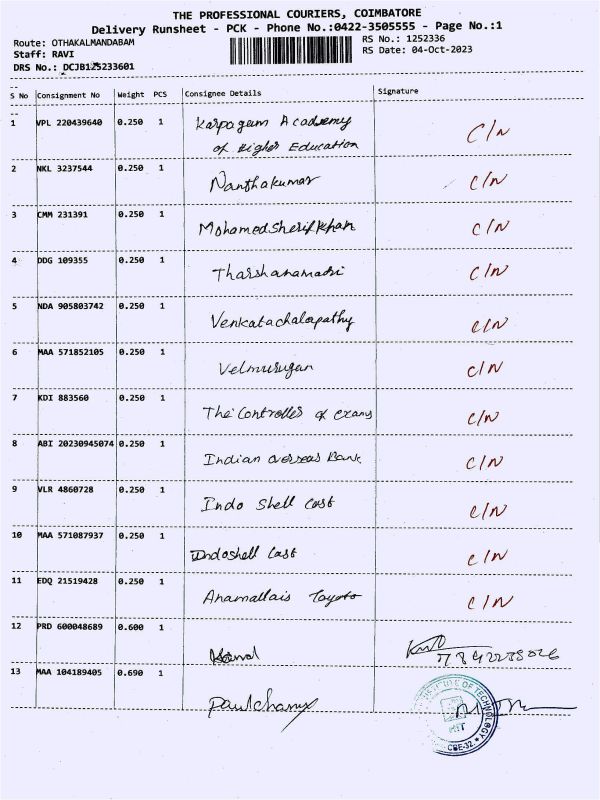 THE PROFESSIONAL COURIERS, COIMBATORE
Delivery Runsheet - PCK - Phone No.:0422-3505555 - Page No.:1
Route: OTHAKALMANDABAM
RS No.: 1252336
Staff: RAVI
RS Date: 04-Oct-2023
DRS No.: DCJB125233601
S No Consignment No Weight PCS Consignee Details Signature
1 VPL 220439640 0.250 1 Karpagam Academy C/N
of Higher Education
2 NKL 3237544 0.250 1 Nanthakumar C/N
3 CMM 231391 0.250 1 Mohamed Sherif Khan C/N
4 DDG 109355 0.250 1 Tharshanamadri C/N
5 NDA 905803742 0.250 1 Venkatachalapathy C/N
6 MAA 571852105 0.250 1 Velmurugan C/N
7 KDI 883560 0.250 1 The Controller of Exams C/N
8 ABI 20230945074 0.250 1 Indian overseas Bank C/N
9 VLR 4860728 0.250 1 Indo Shell Cast C/N
10 MAA 571087937 0.250 1 Indoshell Cast C/N
11 EDQ 21519428 0.250 1 Anamallais Toyoto C/N
12 PRD 600048689 0.600 1
13 MAA 104189405 0.690 1
OF TECHNOLOGY
CBE-32